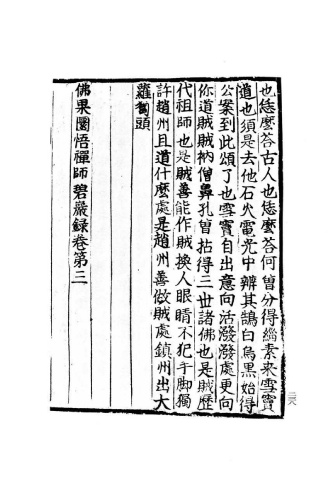 也恁麽荅古人也恁麽荅何曾分得緇素來雪竇
道也須是去他石火電光中辨其鵠白烏黑始得
公案到此頌了也雪竇自出意向活潑潑處更向
你道賊賊衲僧鼻孔曾拈得三世諸佛也是賊歷
代祖師也是賊善能作賊換人眼睛不犯手脚獨
許趙州且道什麽處是趙州善做賊處鎮州出大
蘿蔔頭
佛果圜悟禪師碧巖録卷第三